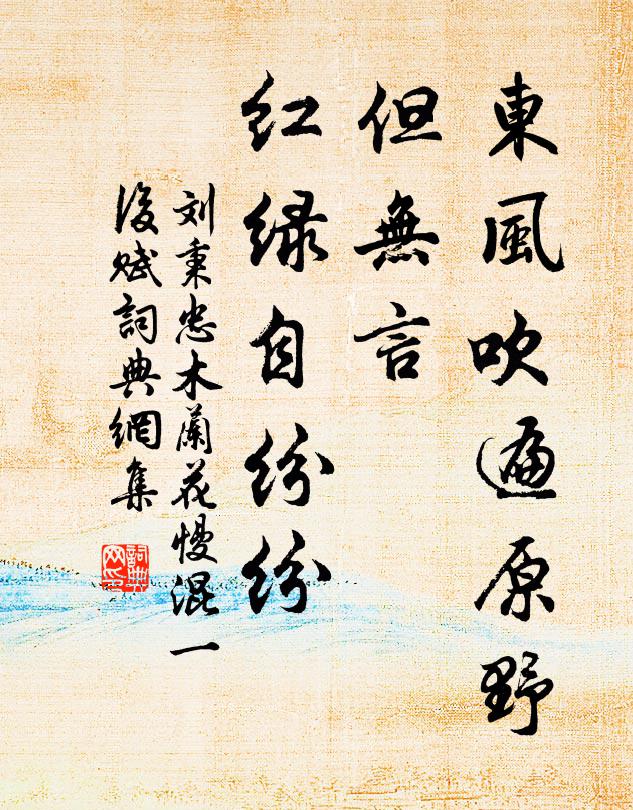 東風吹遍原野
但無言
紅绿自紛紛
刘秉忠木蘭花慢混一
後赋詞典網集
詞典
网印